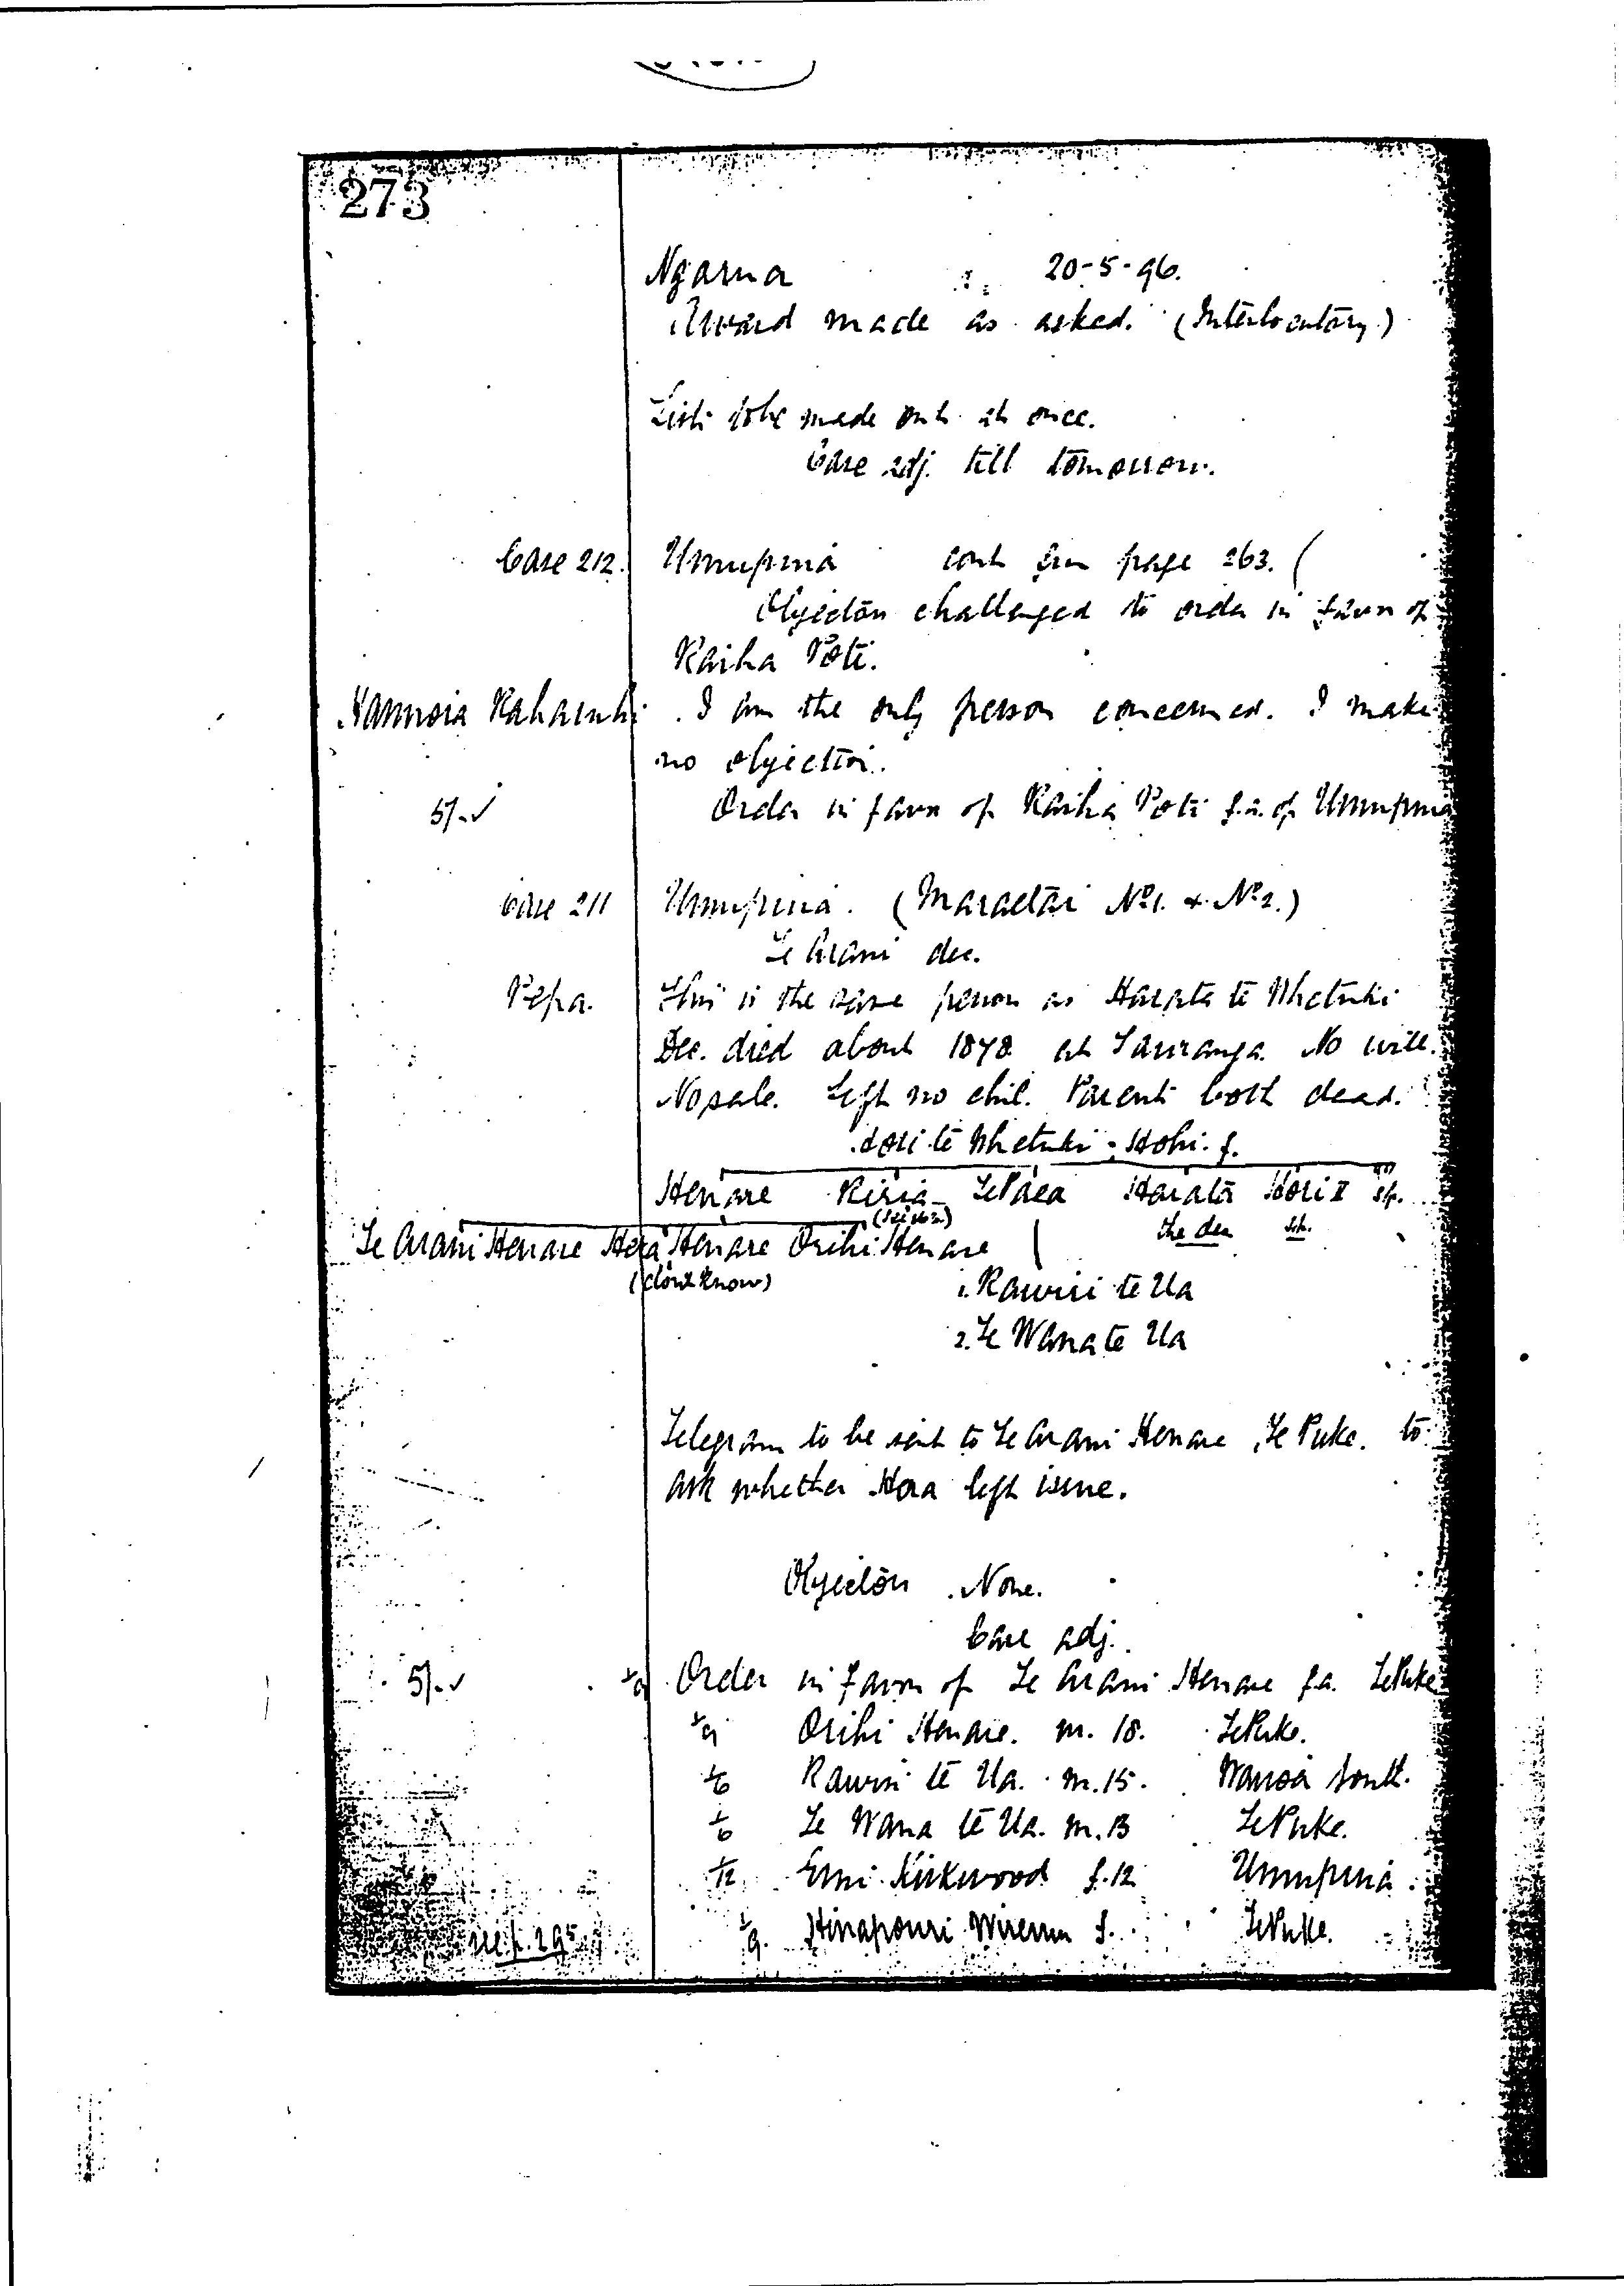 273
Ngarua 20-5-96.
Award made as asked. (Interlocutory)
List to be made out at once.
Case adj. till tomorrow.
Case 212. Umupuia cont from page 263. (
Objectors challenged to order in favor of
Raiha Poti.
I am the only person concerned. I make
no objection.
5/- ✓ Order in favor of Raiha Poti f.a. of Umupuia
Case 211 Umupuia. (Maraetai No 1. & No 2.)
Te Arani dec.
Pepa. This is the same person as Harata te Whetuki
Dec. died about 1878 at Tauranga. No will.
No sale. Left no chil. Parents both dead.
te Whetuki = Hohi. f.
Henare Kiria Te Paea Harata Hori II
(See
the dec
Te Arani Henare Hera Henare Orihi Henare
(don't know)
1. Rawiri te Ua
2. Te Wana te Ua
Telegram to be sent to Te Arani Henare, Te Puke. to
ask whether Hera left issue.
Objectors. None.
Case adj.
5/- ✓ 1/9 Order in favor of Te Arani Henare f.a. Te Puke
1/9 Orihi Henare. m. 18. Te Puke.
1/6 Rawiri te Ua. m. 15. Wairoa South.
1/6 Te Wana te Ua. m. 13 Te Puke.
1/12 Emi Kirkwood f. 12 Umupuia.
see p. 295 1/9. Hinapouri Wiremu f. Te Puke.